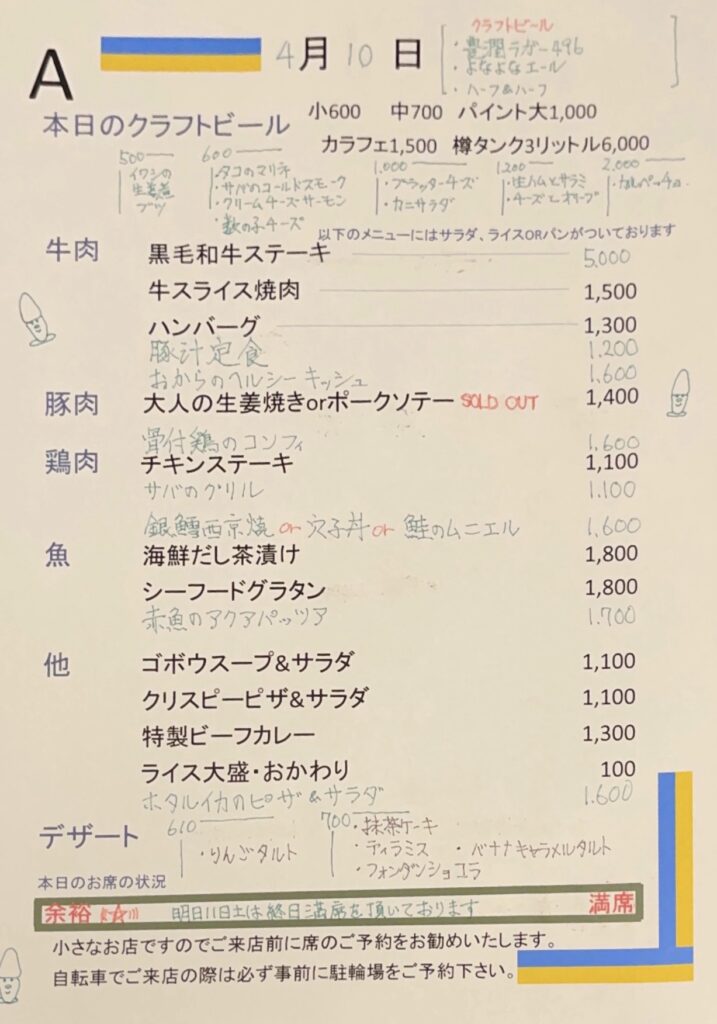 A
4月10日
クラフトビール
・豊潤ラガー496
・よなよなエール
・ハーフ&ハーフ
本日のクラフトビール
小600 中700 パイント大1,000
カラフェ1,500 樽タンク3リットル6,000
500
イワシの
生姜煮
600
・タコのマリネ
・サバのコールドスモーク
・クリームチーズサーモン
・数の子チーズ
1,000
・ブラッターチーズ
・カニサラダ
1,200
・生ハムとサラミ
・チーズとオリーブ
2,000
・カルパッチョ
以下のメニューにはサラダ、ライスORパンがついております
牛肉 黒毛和牛ステーキ 5,000
牛スライス焼肉 1,500
ハンバーグ 1,300
豚汁定食 1.200
おからのヘルシーキッシュ 1.600
豚肉 大人の生姜焼きorポークソテー SOLD OUT 1,400
骨付鶏のコンフィ 1.600
鶏肉 チキンステーキ 1,100
サバのグリル 1.100
銀鱈西京焼 or 穴子丼 or 鮭のムニエル 1.600
魚 海鮮だし茶漬け 1,800
シーフードグラタン 1,800
赤魚のアクアパッツア 1.700
他 ゴボウスープ&サラダ 1,100
クリスピーピザ&サラダ 1,100
特製ビーフカレー 1,300
ライス大盛・おかわり 100
ホタルイカのピザ&サラダ 1.600
デザート
610
・りんごタルト
700
・抹茶ケーキ
・ティラミス ・バナナキャラメルタルト
・フォンダンショコラ
本日のお席の状況
余裕 明日11日土は終日満席を頂いております 満席
小さなお店ですのでご来店前に席のご予約をお勧めいたします。
自転車でご来店の際は必ず事前に駐輪場をご予約下さい。